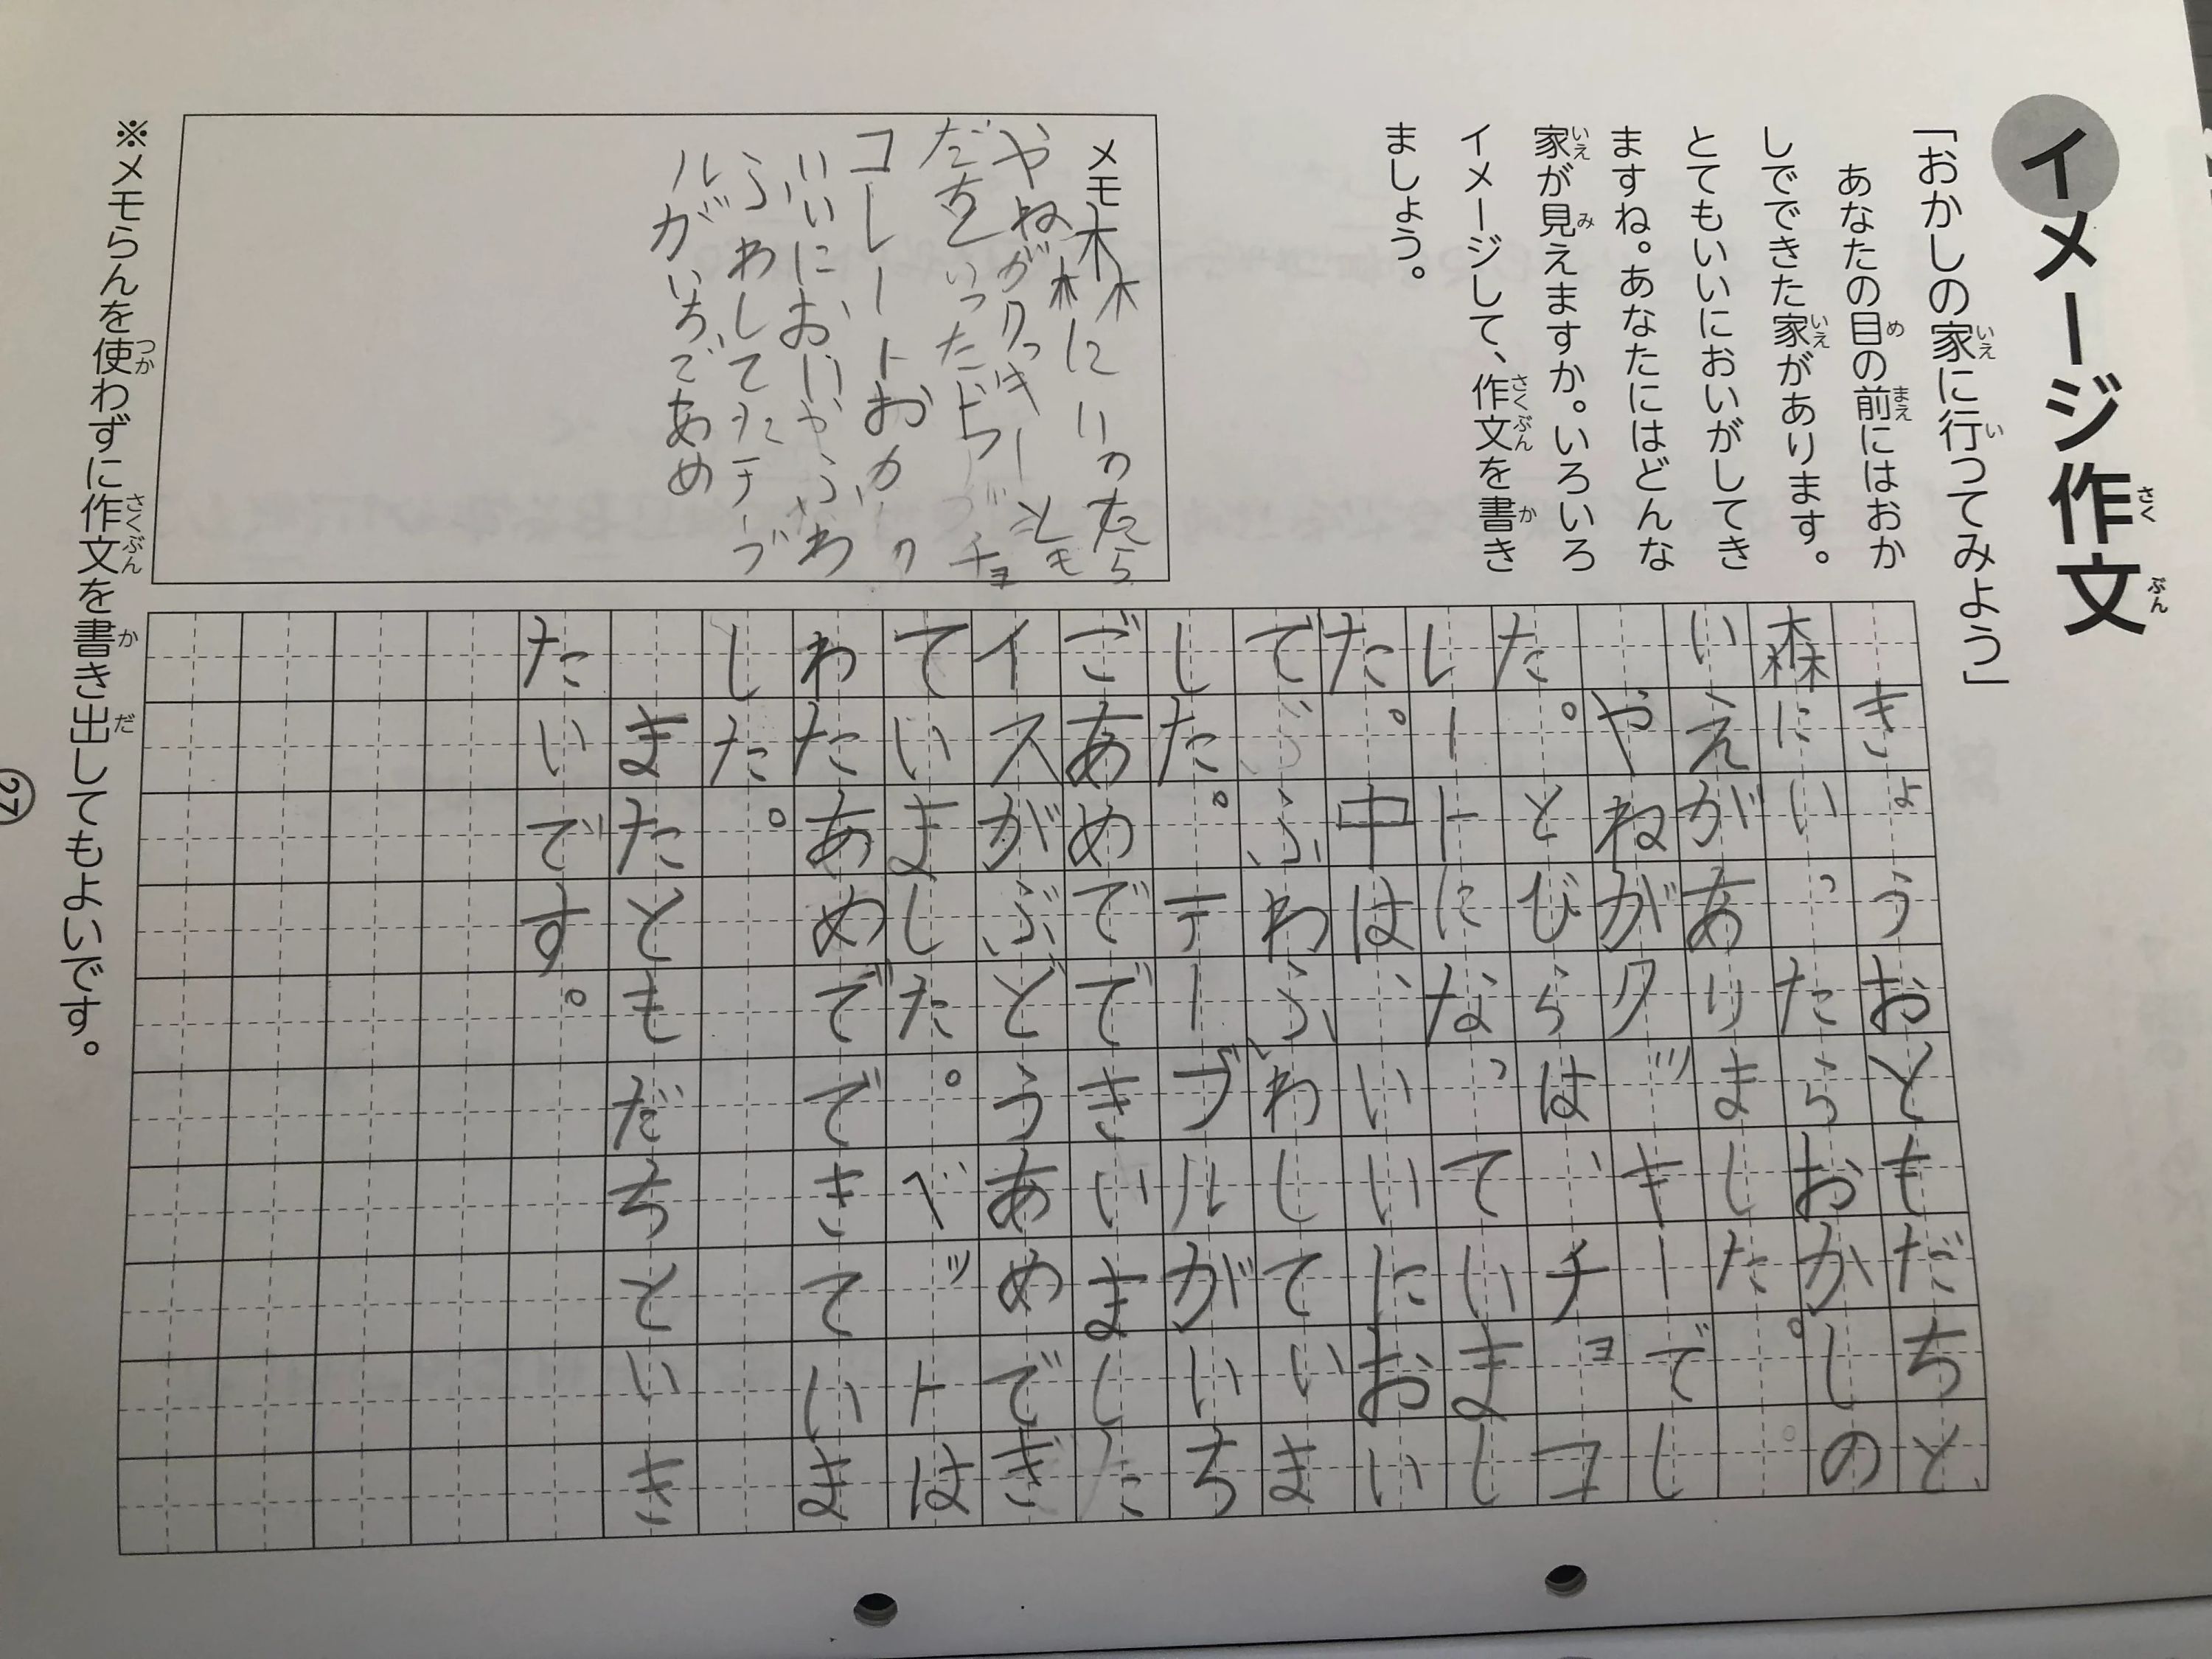 イメージ作文
さく ぶん
「おかしの家に行ってみよう」
いえ い
あなたの目の前にはおか
め まえ
しでできた家があります。
いえ
とてもいいにおいがしてき
ますね。あなたにはどんな
家が見えますか。いろいろ
いえ み
イメージして、作文を書き
さくぶん か
ましょう。
メモ 森にいったら
やねがクッキー とも
だちといった チョ
コレート
いいにおい ふわ
ふわしてた テーブ
ルがいちごあめ
きょうおともだちと、
森にいったらおかしの
いえがありました。
やねがクッキーでし
た。とびらは、チョコ
レートになっていまし
た。中は、いいにおい
でふわふわしていま
した。テーブルがいち
ごあめでできいました
イスがぶどうあめでぎ
ていました。ベットは
わたあめでできていま
した。
またともだちといき
たいです。
※メモらんを使わずに作文を書き出してもよいです。
つか さくぶん か だ
27